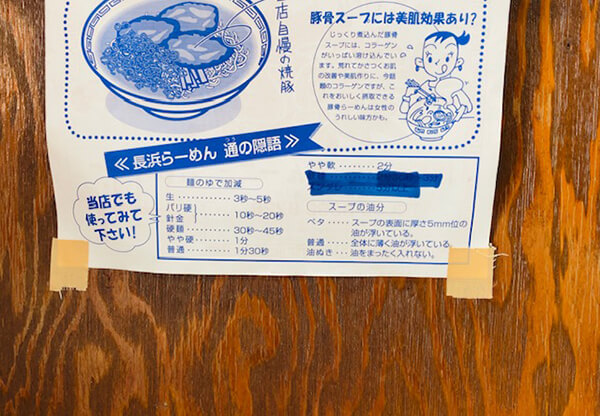 当店自慢の焼豚
豚骨スープには美肌効果あり?
じっくり煮込んだ豚骨
スープには、コラーゲン
がいっぱい溶け込んでい
ます。荒れてかさつくお肌
の改善や美肌作りに、今話
題のコラーゲンですが、こ
れをおいしく摂取できる
豚骨らーめんは女性の
うれしい味方かも。
≪長浜らーめん 通の隠語≫
つう
当店でも
使ってみて
下さい!
麺のゆで加減
生・・・・・・・・・・3秒〜5秒
バリ硬
針金
10秒〜20秒
硬麺・・・・・・・・30秒〜45秒
やや硬・・・・・・1分
普通・・・・・・・・1分30秒
やや軟・・・・・・・・2分
スープの油分
ベタ・・・・・スープの表面に厚さ5mm位の
油が浮いている。
普通・・・・・全体に薄く油が浮いている。
油ぬき・・・油をまったく入れない。